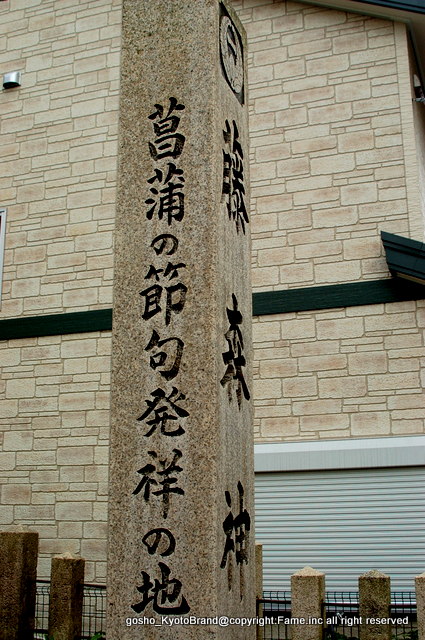 菖蒲の節句発祥の地
藤森神
gosho_KyotoBrand@copyright:Fame.inc all right reserved